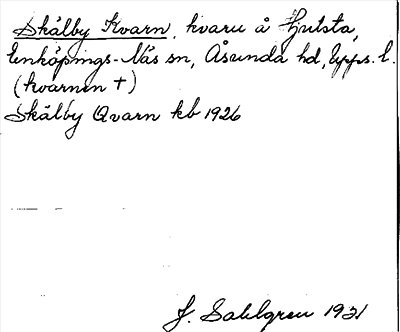 Skälby Kvarn, kvarn å Hjulsta,
Enköpings-Näs sn, Åsunda hd, Upps. l.
(kvarnen †)
Skälby Qvarn kb 1926
J. Sahlgren 1931